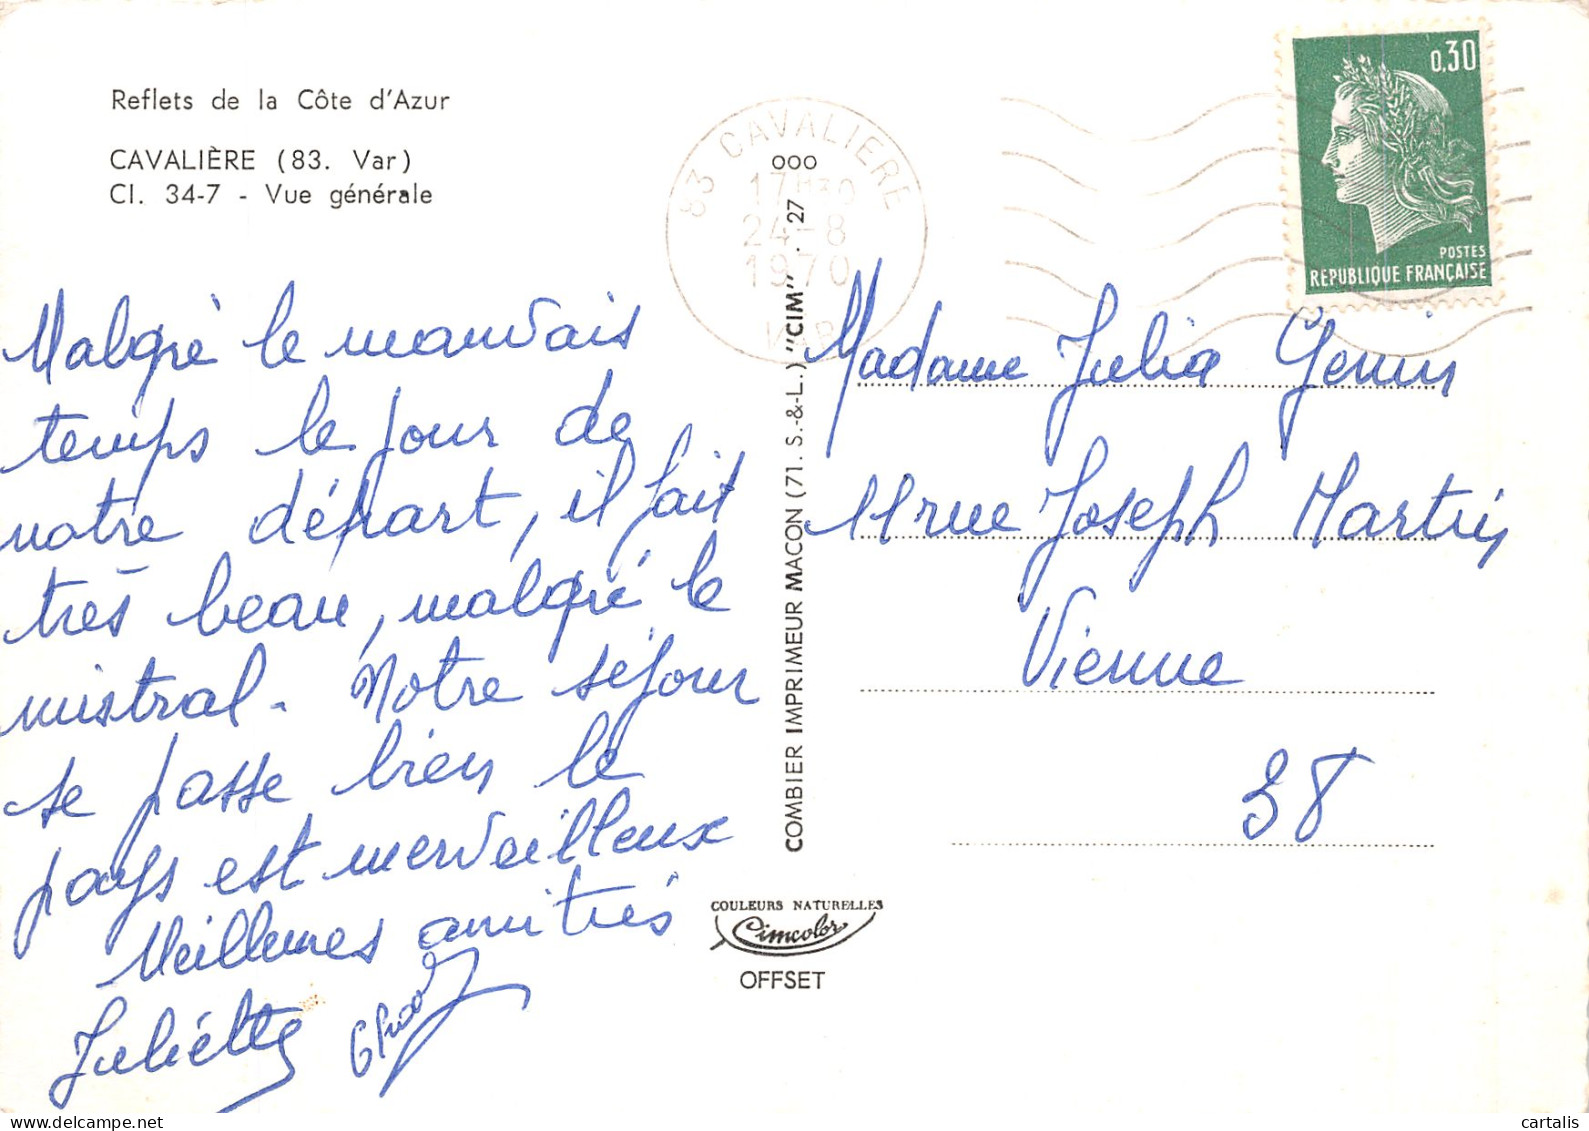 Reflets de la Côte d'Azur
CAVALIÈRE (83. Var)
Cl. 34-7 - Vue générale
Malgré le mauvais
temps le jour de
notre départ, il fait
très beau, malgré le
mistral. Notre séjour
se passe bien le
pays est merveilleux
Meilleures amitiés
Juliette
83 CAVALIERE
17H30
24-8
1970
VAR
0,30
POSTES
REPUBLIQUE FRANÇAISE
COMBIER IMPRIMEUR MACON (71. S.-&-L.) "CIM" . 27 000
COULEURS NATURELLES
Cimcolor
OFFSET
Madame Julia Genin
11 rue Joseph Martin
Vienne
38
delcampe.net
cartalis